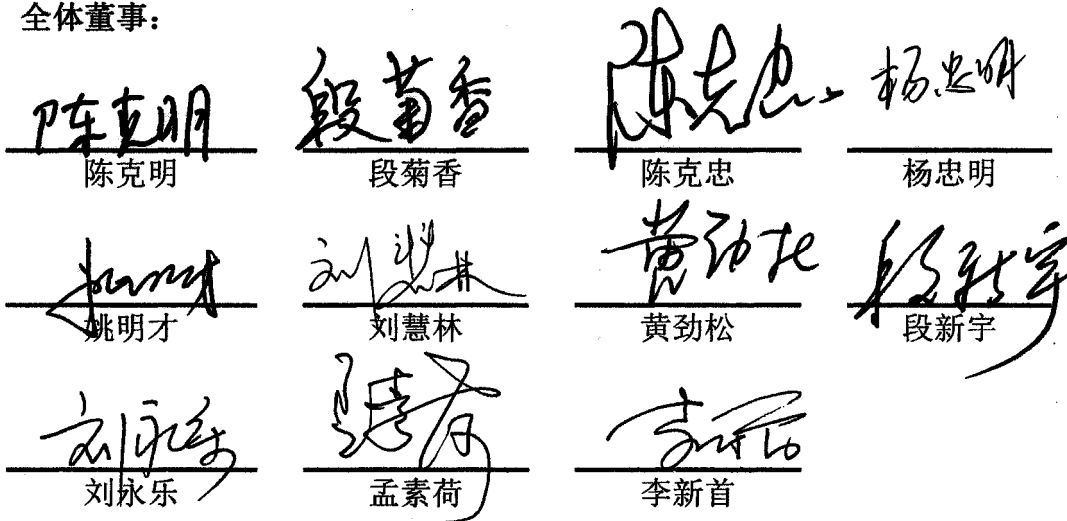 全体董事：
陈克明 段菊香 陈克忠 杨忠明
陈克明 段菊香 陈克忠 杨忠明
姚明才 刘慧林 黄劲松 段新宇
姚明才 刘慧林 黄劲松 段新宇
刘永乐
刘永乐 孟素荷 李新首